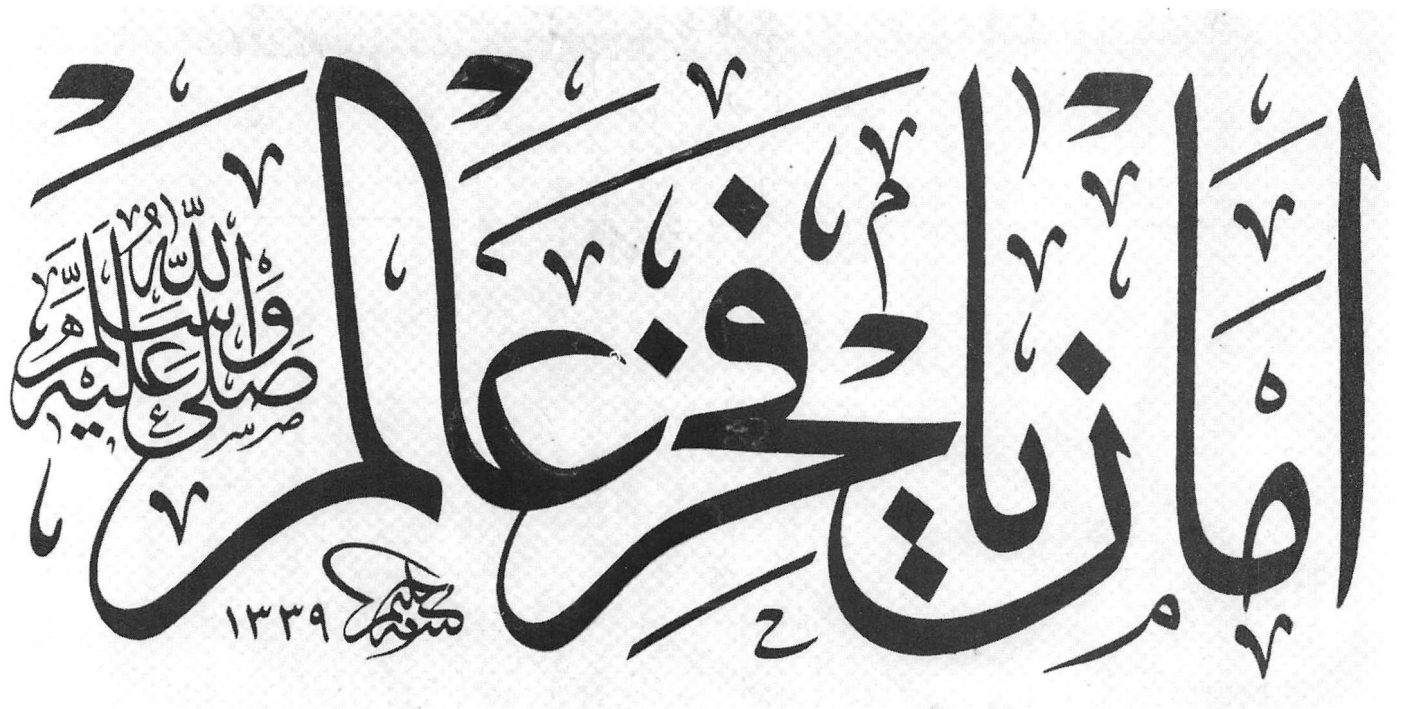 اَمَانْ يَا فَخْرِ عَالَمْ
صلى الله عليه وسلم
كتبه حليم ١٣٣٩